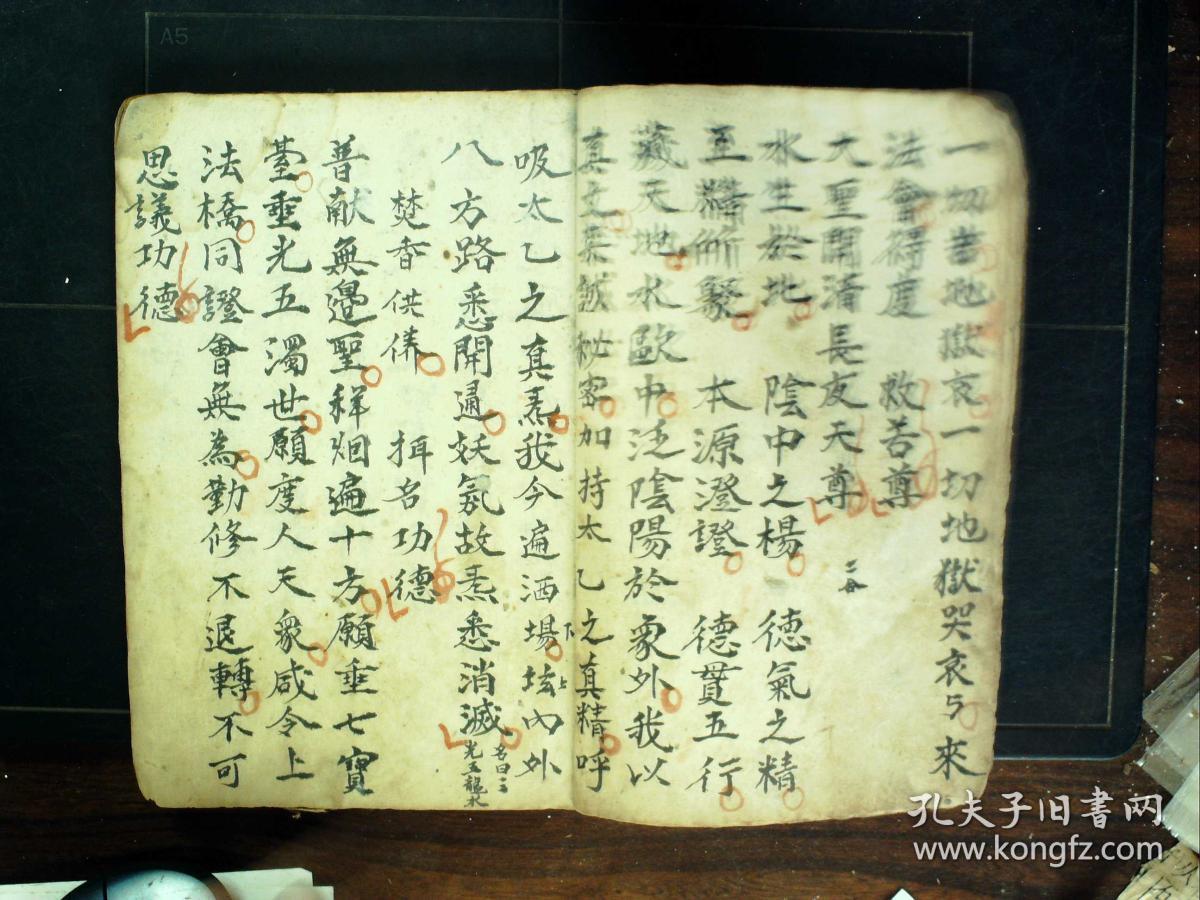 一切苦地獄哀一切地獄哭哀与來
法會得度　救苦尊
大聖開濟長夜天尊
水生於北　陰中之楊　德氣之精
至精所聚　本源澄證　德貫五行
藏天地水歐中泛陰陽於象外我以
真文某誠秘密加持太乙之真精呼
吸太乙之真炁我今遍洒場下壇上內外
八方路悉開通妖氛故炁悉消滅
名曰三
光五龍水
焚香供養　拜名功德
普献無邊聖祥烟遍十方願垂七寶
臺垂光五濁世願度人天衆咸令上
法橋同證會無為勤修不退轉不可
思議功德
A5
孔夫子旧书网
www.kongfz.com